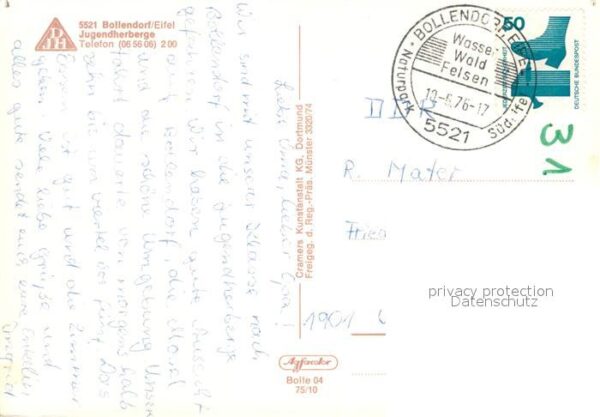 5521 Bollendorf/Eifel
Jugendherberge
Telefon (0 65 26) 2 00
DJH
Liebe Oma, lieber Opa!
Wir sind mit unserer Klasse nach
Bollendorf in die Jugendherberge
gefahren. Wir haben gute Aussicht
auf Bollendorf, die
und die schöne Umgebung. Unsere
Fahrt dauerte von morgens halb
zehn bis um viertel vor fünf. Das
Essen ist gut und die Zimmer
Viele liebe Grüße und
alles gute sendet euch eure Enkelin
Cramers Kunstanstalt KG, Dortmund
Freigeg. d. Reg.-Präs. Münster 3320/74
Agfacolor
Bolle 04
75/10
BOLLENDORF/EIFEL
Wasser
Wald
Felsen
19.-5.76-17
Naturpark
Südeifel
5521
50
DEUTSCHE BUNDESPOST
DDR
31
R. Mater
Fried
1901
privacy protection
Datenschutz